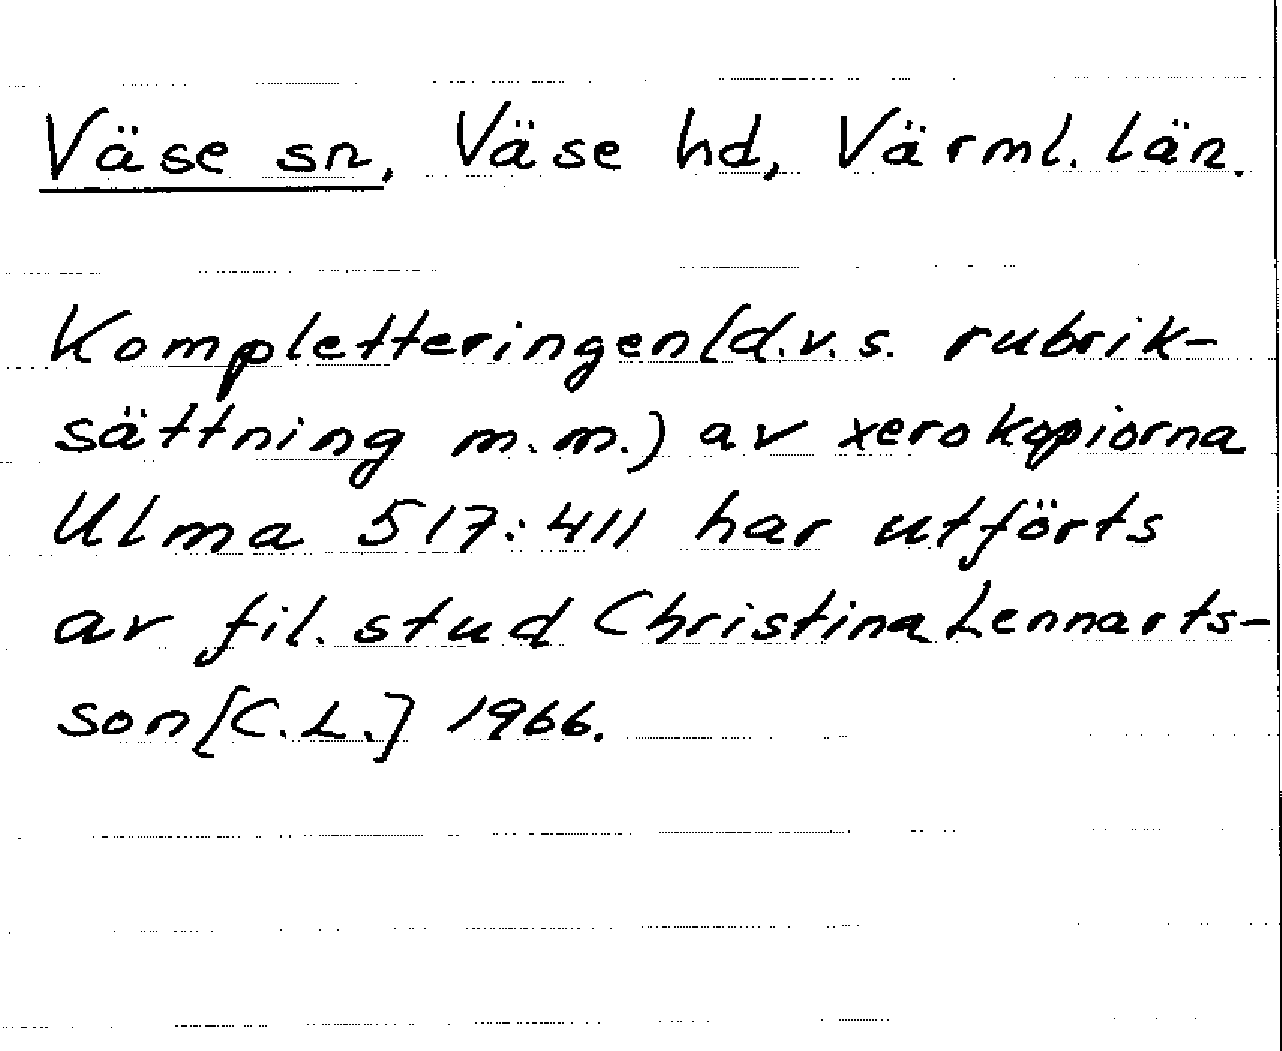 Väse sn, Väse hd, Värml. län.
Kompletteringen (d.v.s. rubrik-
sättning m.m.) av xerokopiorna
Ulma 517:411 har utförts
av fil. stud Christina Lennarts-
son [C.L.] 1966.